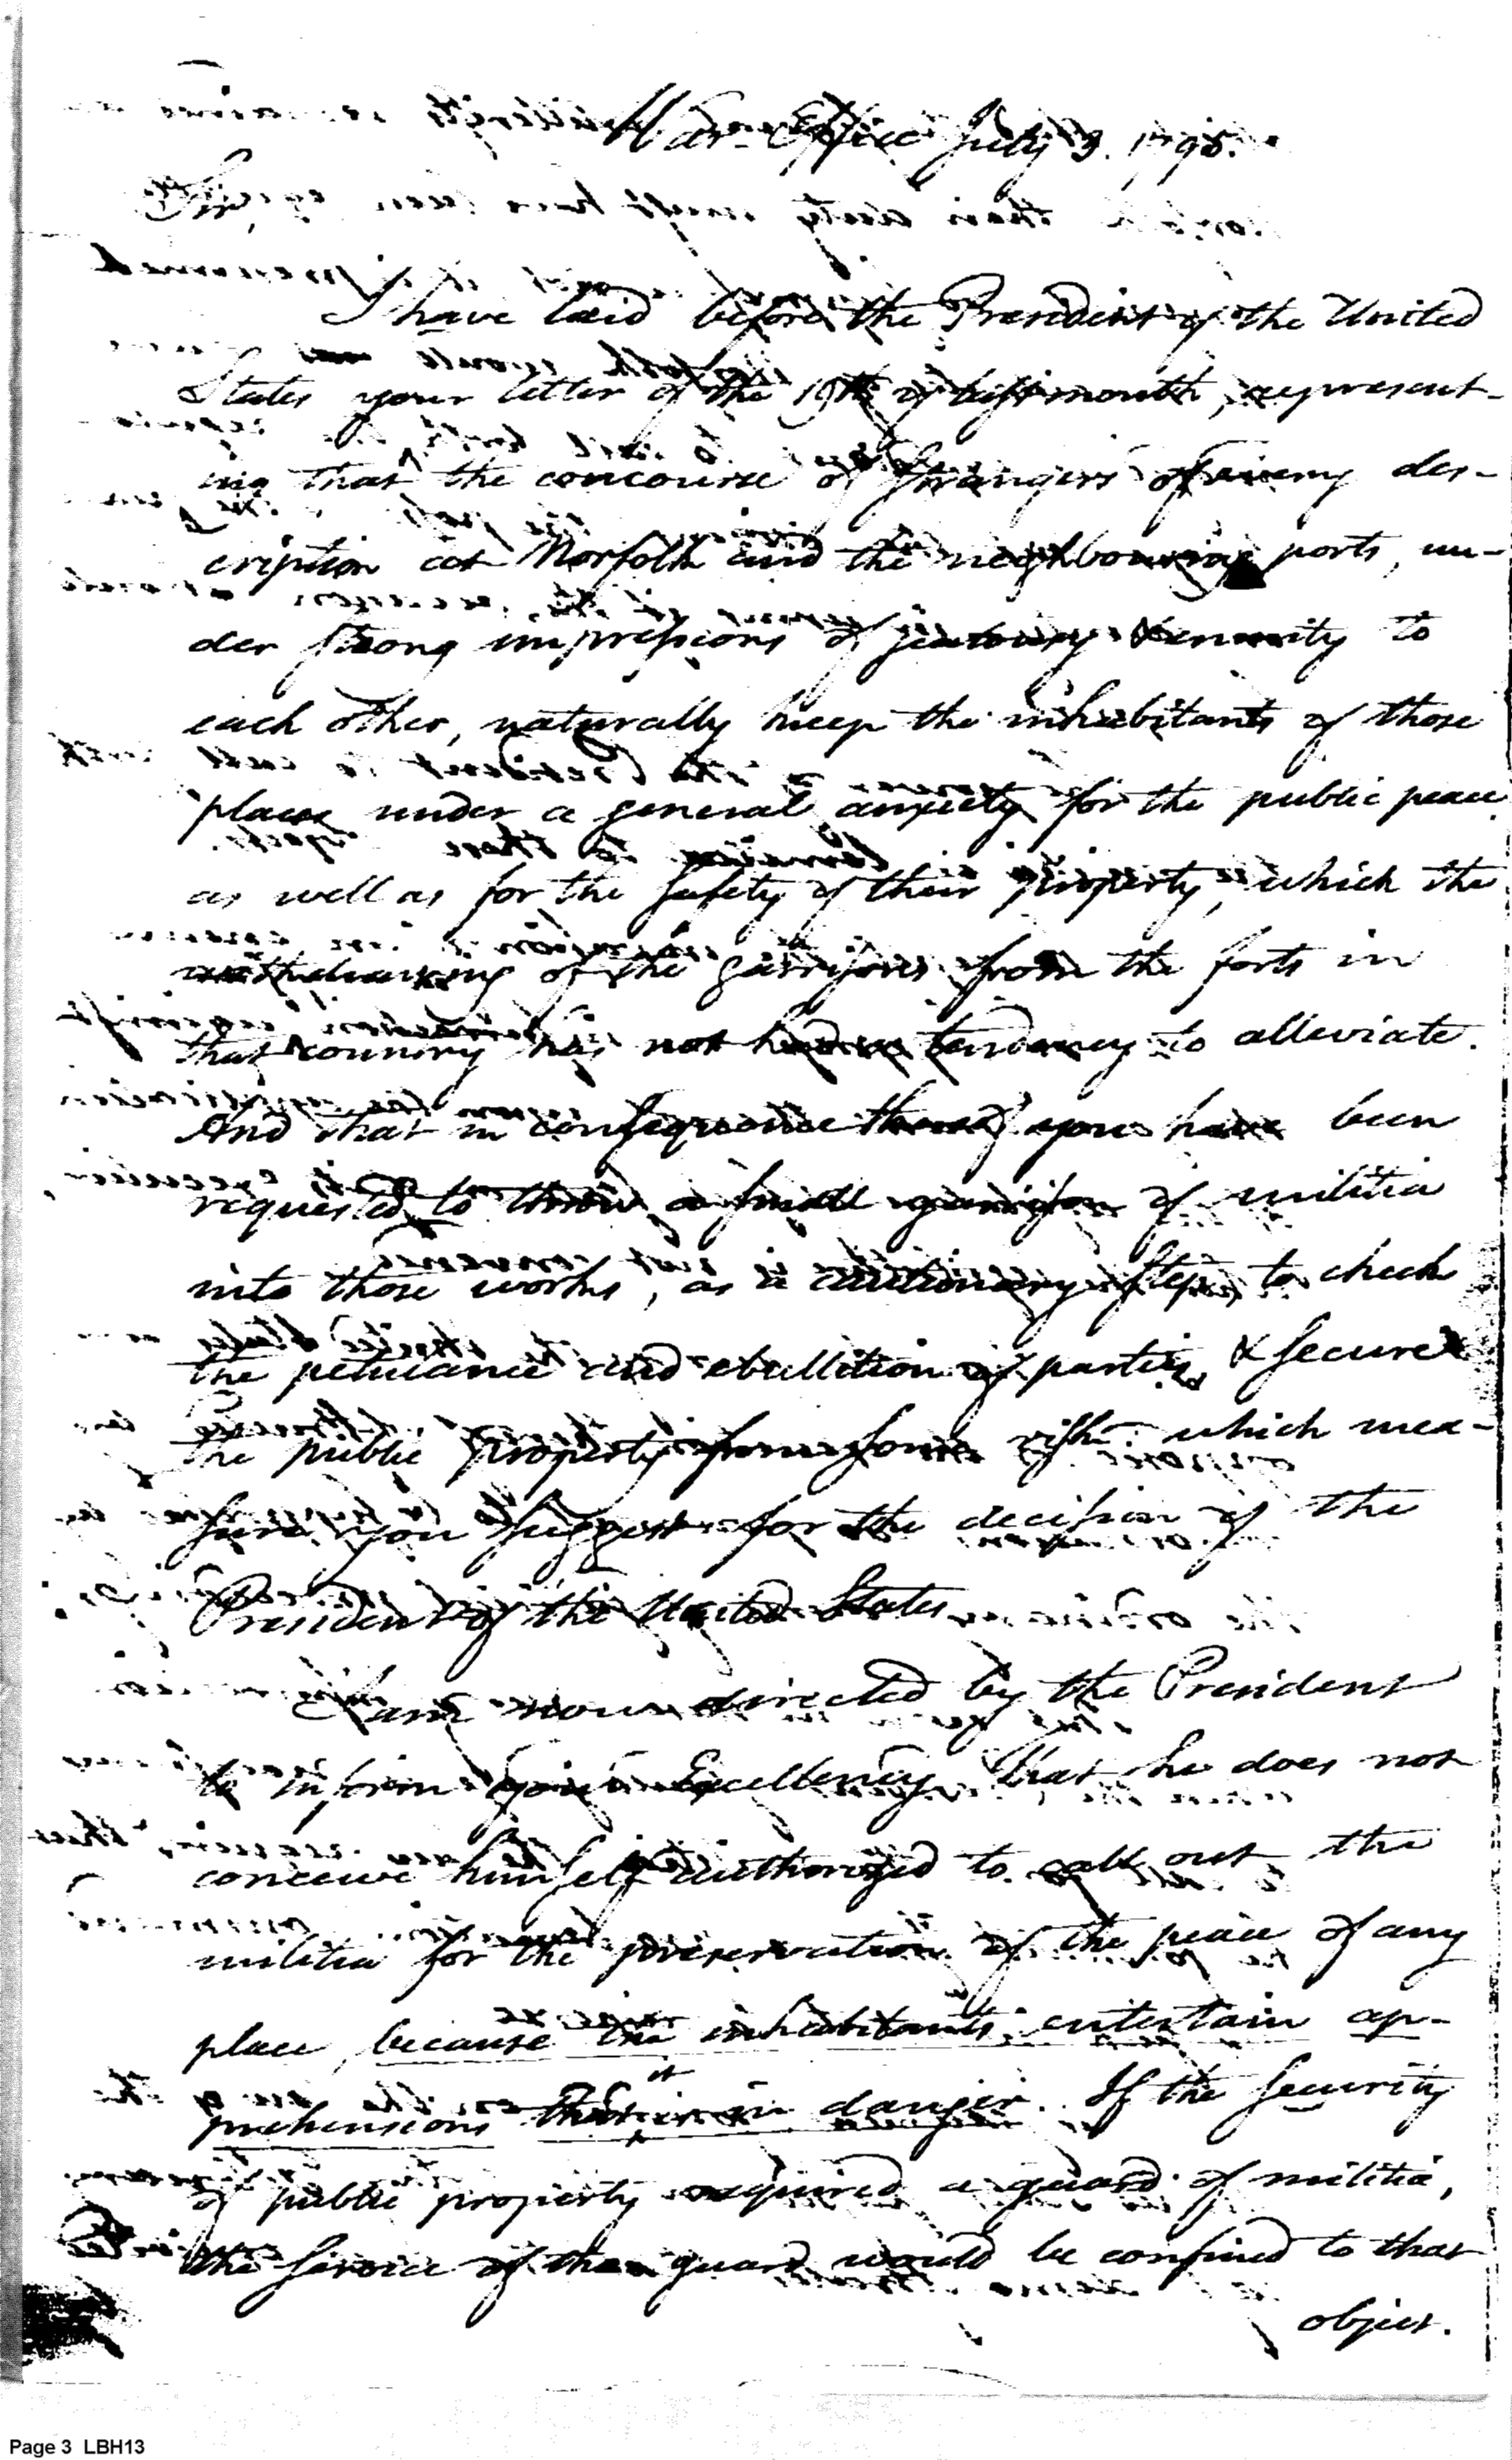 War-Office July 3. 1795.
Sir,
I have laid before the President of the United
States your letter of the 19th of last month, represent-
ing that the concourse of strangers of every des-
cription at Norfolk and the neighbouring ports, un-
der strong impressions of jealousy & enmity to
each other, naturally keep the inhabitants of those
places under a general anxiety for the public peace
as well as for the safety of their property, which the
withdrawing of the garrisons from the forts in
that country has not had a tendency to alleviate.
And that in consequence thereof you have been
requested to throw a small garrison of militia
into those works, as a cautionary step, to check
the petulance and ebullition of parties, & secure
the public property from some risk: which mea-
sure you suggest for the decision of the
President of the United States
I am now directed by the President
to inform your Excellency that he does not
conceive himself authorized to call out the
militia for the preservation of the peace of any
place, because the inhabitants entertain ap-
prehensions that it is in danger. If the security
of public property required a guard of militia,
the service of the guard would be confined to that
object.
Page 3 LBH13